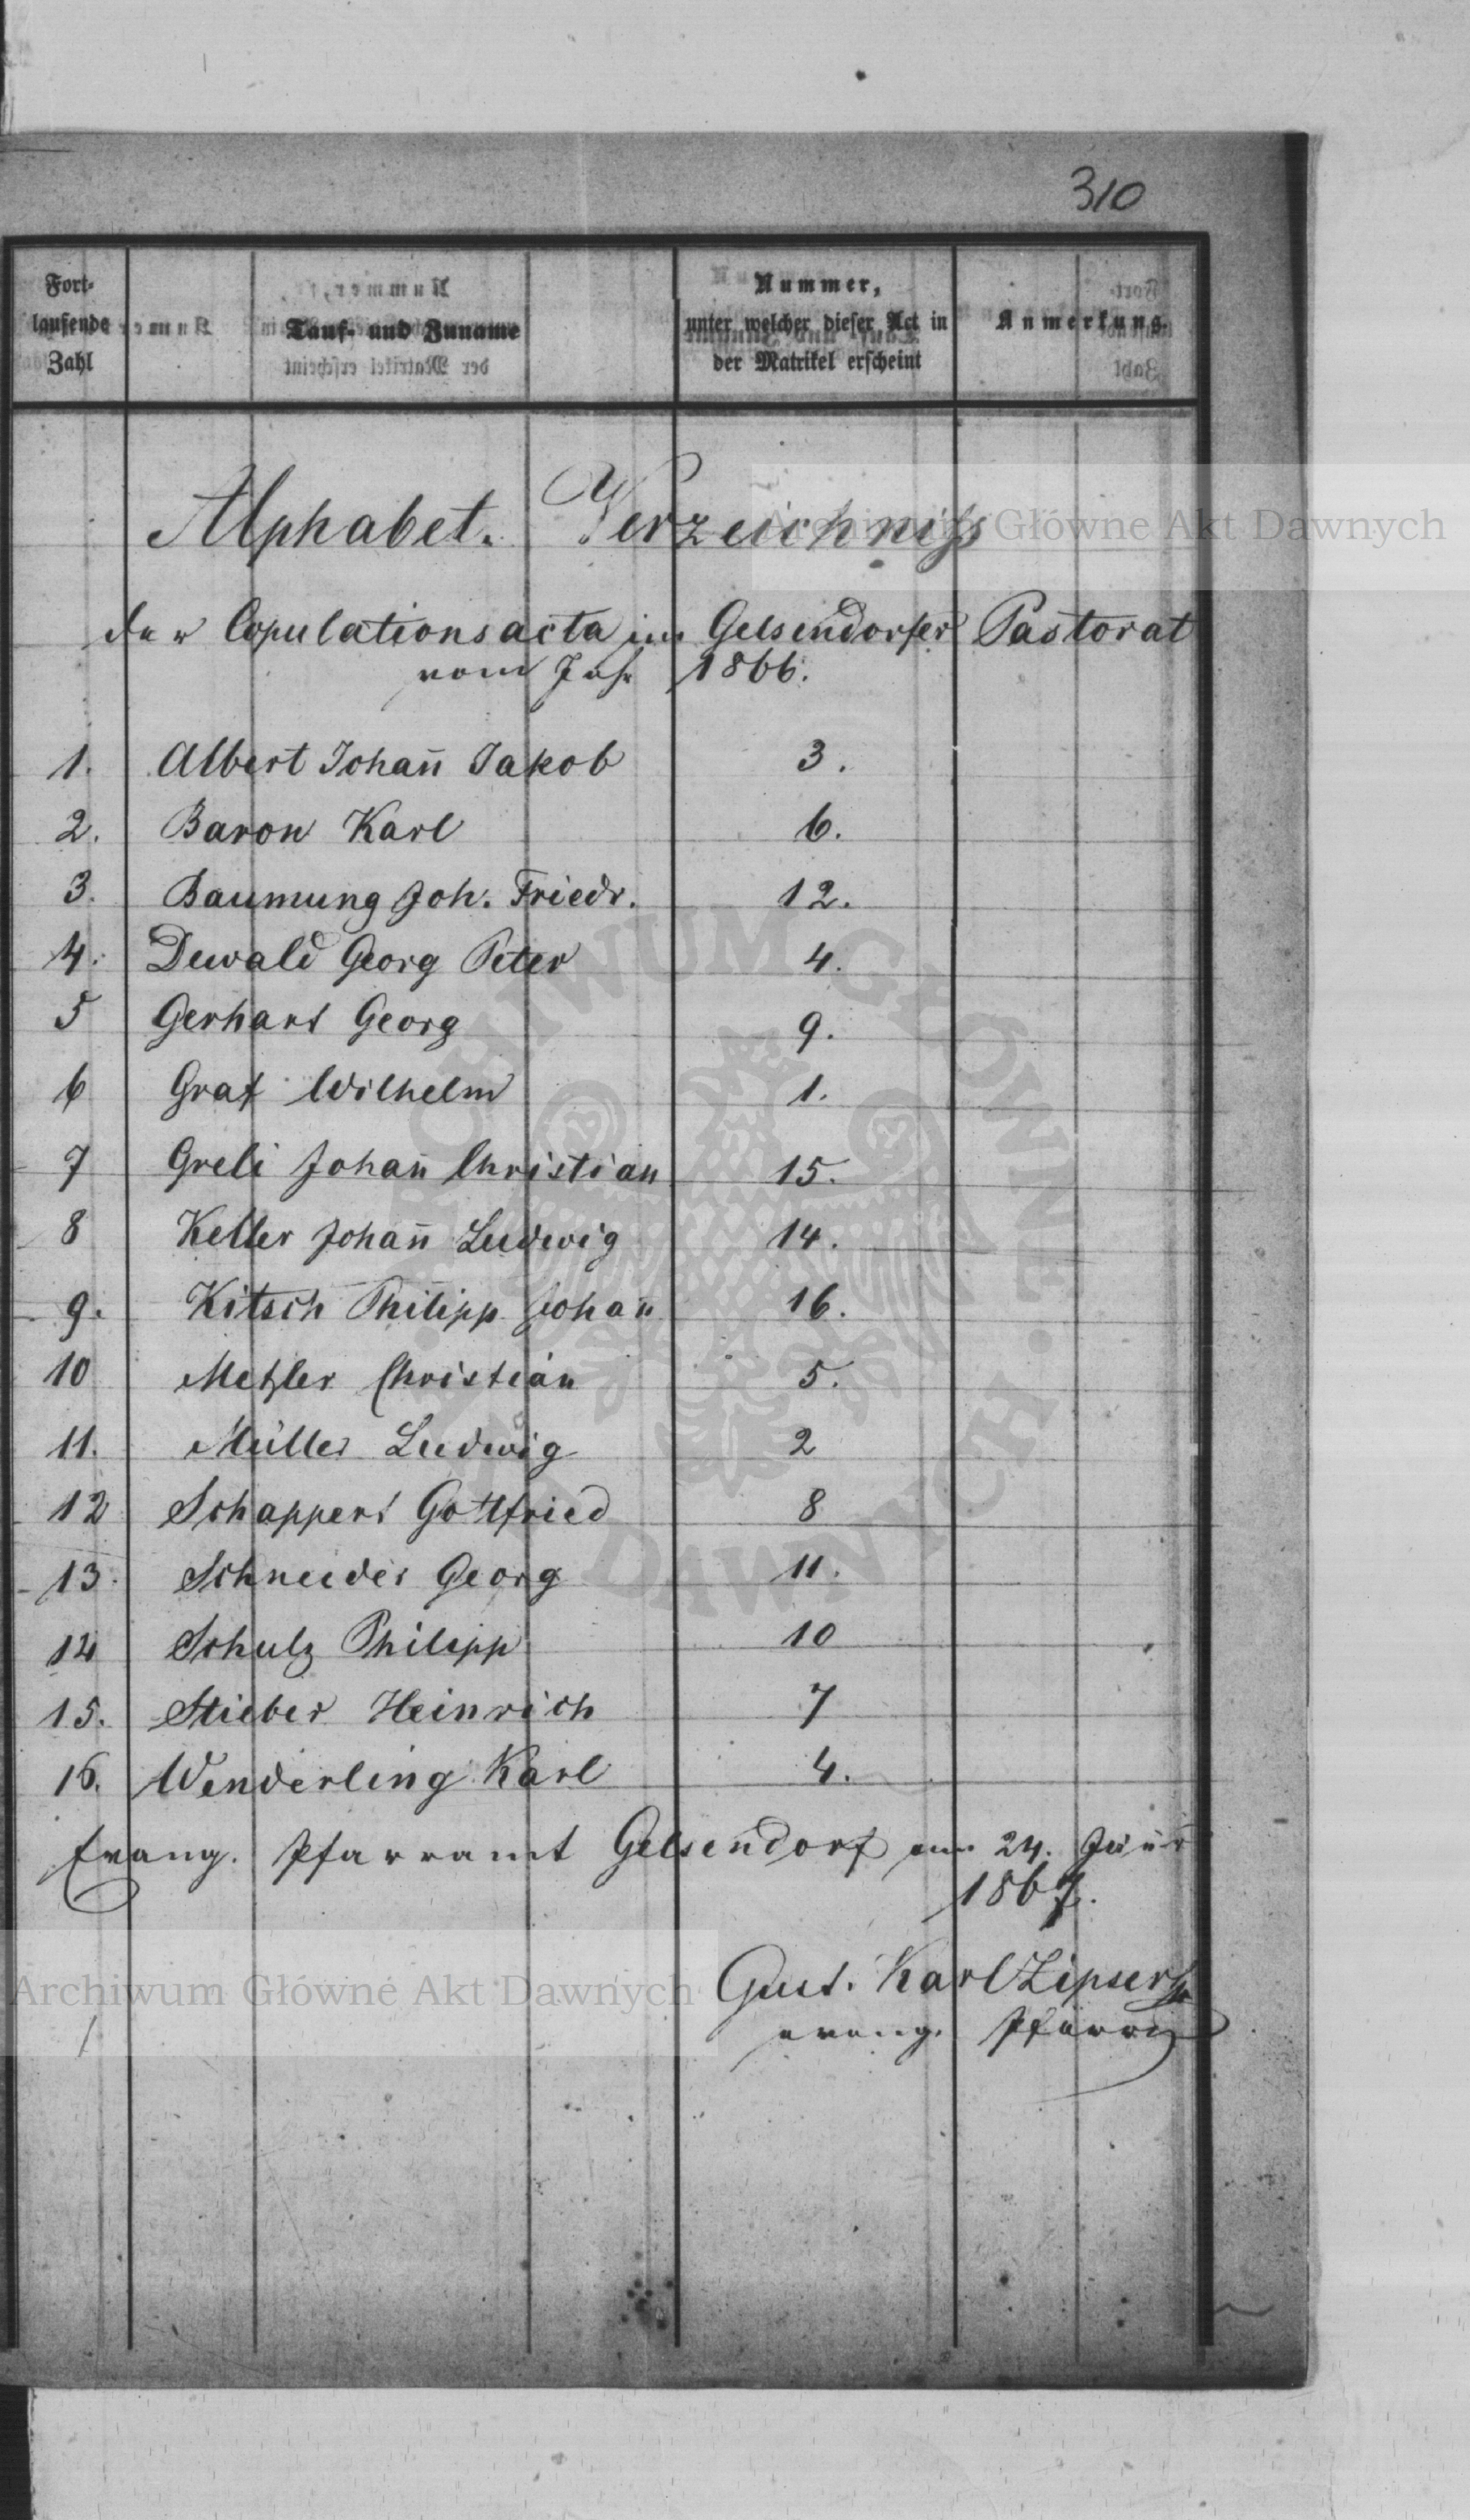 310
Fort-
laufende
Zahl
Tauf- und Zuname
Nummer,
unter welcher dieser Act in
der Matrikel erscheint
Anmerkung.
Alphabet. Verzeichniß
der Copulationsacta im Gelsendorfer Pastorat
vom Jahr 1866.
1. Albert Johan̄ Jakob 3.
2. Baron Karl 6.
3. Baumung Joh. Friedr. 12.
4. Dewald Georg Peter 4.
5 Gerhart Georg 9.
6 Graf Wilhelm 1.
7 Greli Johan̄ Christian 15.
8 Keller Johan̄ Ludwig 14.
9. Kitsch Philipp Johan̄ 16.
10 Metzler Christian 5.
11. Müller Ludwig 2
12 Schappert Gottfried 8
13. Schneider Georg 11.
14 Schulz Philipp 10
15. Stieber Heinrich 7
16. Wenderling Karl 4.
Evang. Pfarramt Gelsendorf am 24. Jän̄r
1867.
Gust. Karl Zipser
evang. Pfarrer
Archiwum Główne Akt Dawnych
Archiwum Główne Akt Dawnych